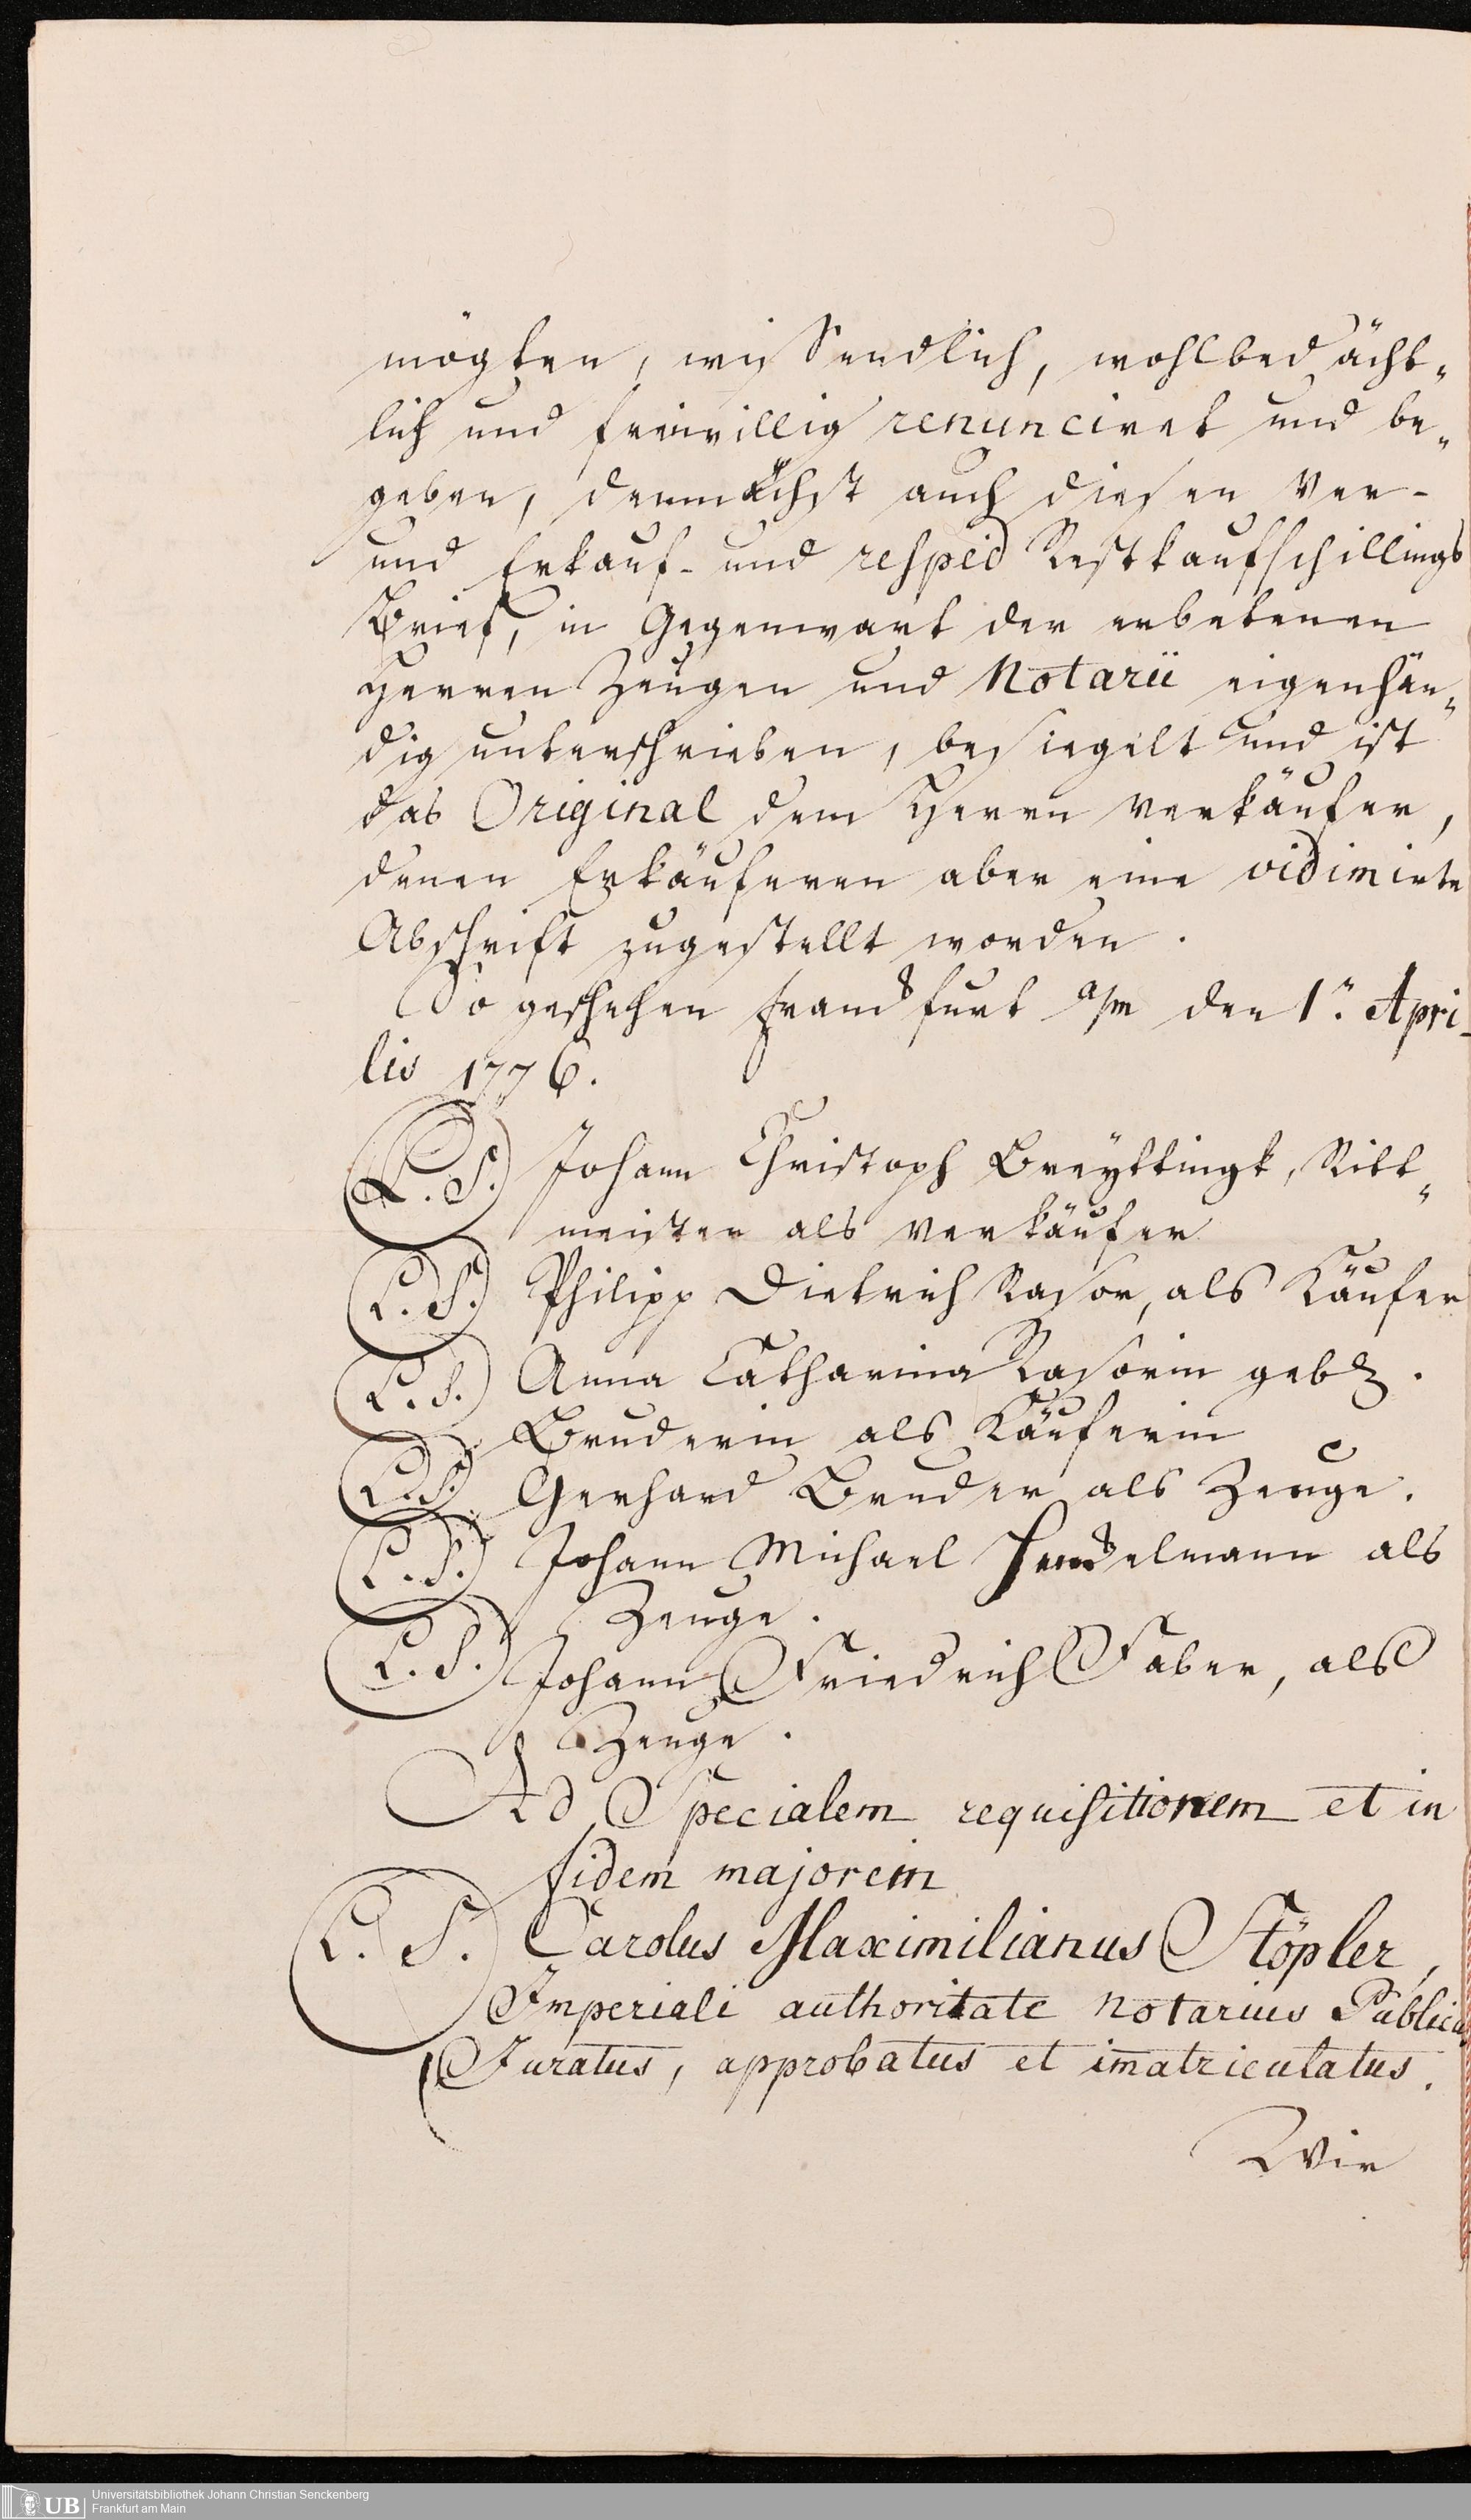 mögten, wissendlich, wohlbedächt„
lich und freiwillig renunciret und be„
geben, demnächst auch diesen Ver-
und Erkauf- und respd Restkaufschillings
Brief, in Gegenwart der erbetenen
Herren Zeugen und Notarii eigenhän„
dig unterschrieben, besiegelt und ist
das Original dem Herrn Verkäufer,
denen Erkäuferen aber eine vidimirte
Abschrift zugestellt worden.
So geschehen Franckfurt a/m den 1n. Apri-
lis 1776.
L. S. Johann Christoph Breyttingk, Ritt„
meister als Verkäufer
L. S. Philipp Dietrich Rasor, als Käufer
L. S. Anna Catharina Rasorin geb.
Bruderin als Käuferin
L. S. Gerhard Bruder als Zeuge.
L. S. Johann Michael als
Zeuge.
L. S. Johann Friedrich Faber, als
Zeuge.
Ad Specialem requisitionem et in
fidem majorem
L. S. Carolus Maximilianus Stöpler,
Imperiali authoritate Notarius Publicus
Juratus, approbatus et imatriculatus.
Wir
UB Universitätsbibliothek Johann Christian Senckenberg
Frankfurt am Main